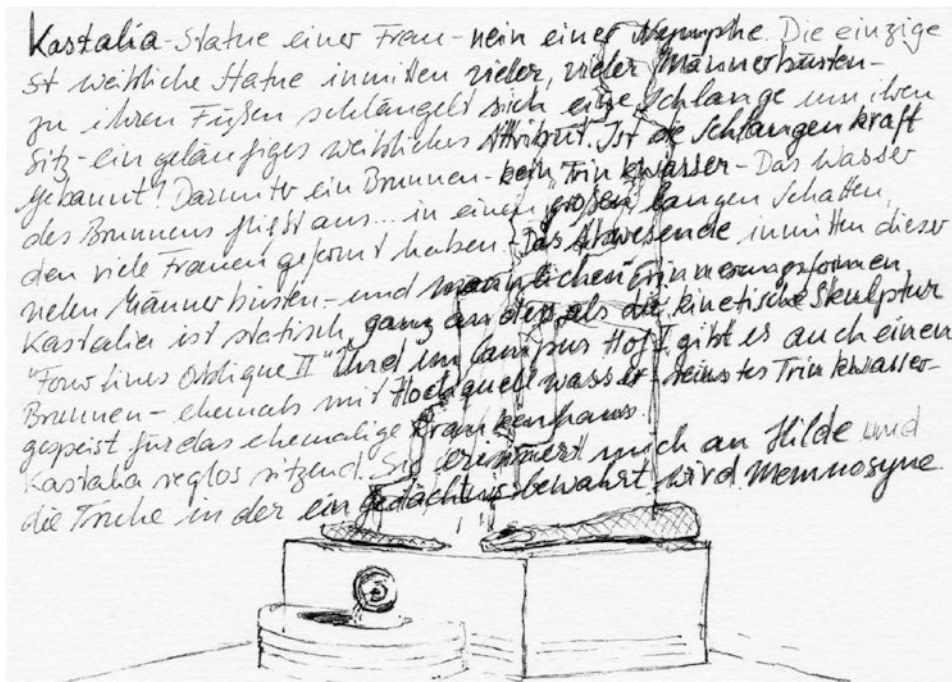 Kastalia - Statue einer Frau - nein einer Nymphe. Die einzige
st weibliche Statue inmitten vieler, vieler Männerbüsten -
zu ihren Füßen schlängelt sich eine Schlange um ihren
Sitz - ein geläufiges weibliches Attribut. Ist die Schlangenkraft
gebannt? Darunter ein Brunnen - kein Trinkwasser - Das Wasser
des Brunnens fließt aus... in einen "großen" langen Schatten,
den viele Frauen geformt haben. - Das Abwesende inmitten dieser
vielen Männerbüsten - und männlichen Erinnerungsformen,
Kastalia ist statisch, ganz anders als die kinetische Skulptur
"Four Lines Oblique II" Und im Campus Hof I gibt es auch einen
Brunnen - ehemals mit Hochquellwasser - reinstes Trinkwasser -
gespeist für das ehemalige Krankenhaus.
Kastalia reglos sitzend. Sie erinnert mich an Hilde und
die Truhe in der ein Gedächtnis bewahrt wird. Memnosyne.